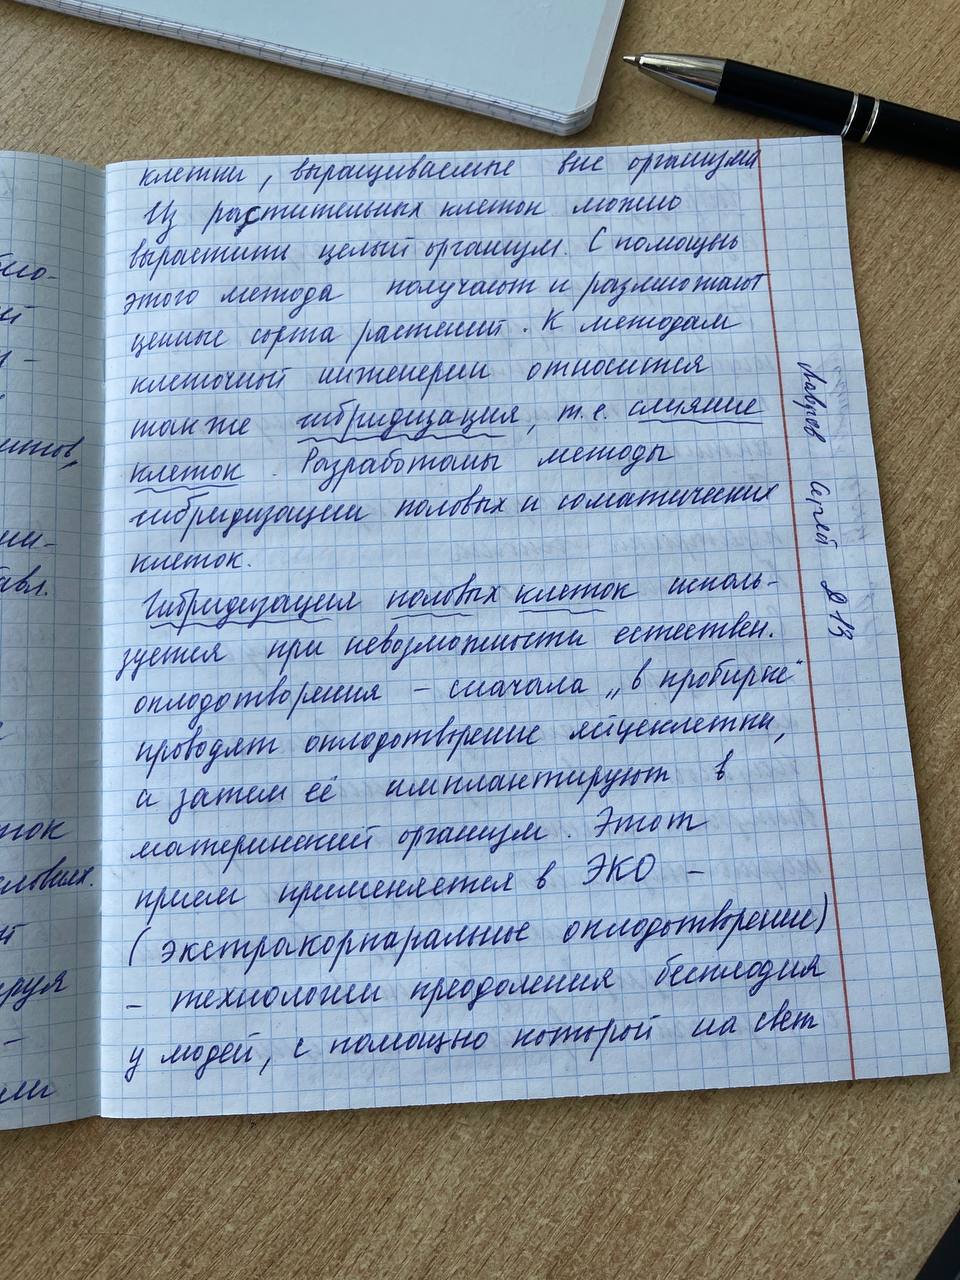 клетки, выращиваемые вне организма
Из растительных клеток можно
вырастить целый организм. С помощью
этого метода получают и размножают
ценные сорта растений. К методам
клеточной инженерии относится
также гибридизация, т.е. слияние
клеток. Разработаны методы
гибридизации половых и соматических
клеток.
Гибридизация половых клеток исполь-
зуется при невозможности естествен.
оплодотворения – сначала „в пробирке"
проводят оплодотворение яйцеклетки,
а затем её имплантируют в
материнский организм. Этот
прием применяется в ЭКО –
(экстракорпоральное оплодотворение)
– технологии преодоления бесплодия
у людей, с помощью которой на свет
Лавров Сергей
ток
ируя